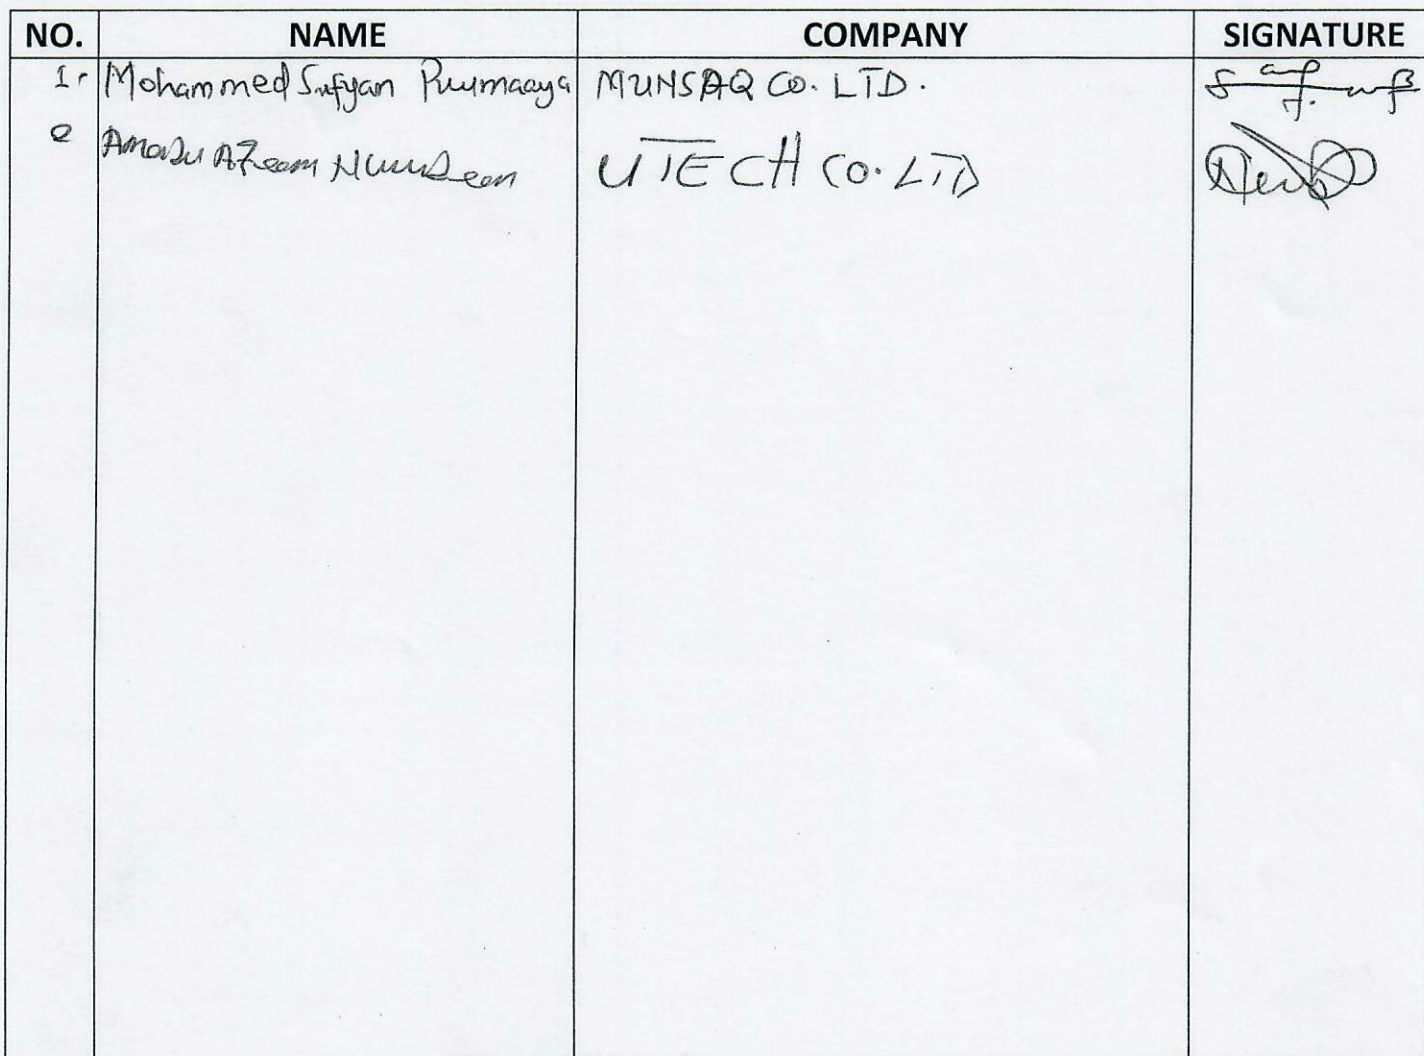 NO. NAME COMPANY SIGNATURE
1. Mohammed Sufyan MUNSAQ CO. LTD.
2 Amadu Azeem Nurudeen UTECH CO. LTD